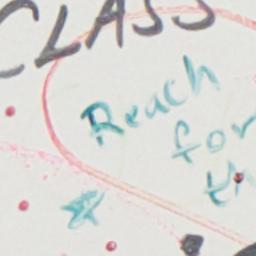 CLASS
Reach
for
th